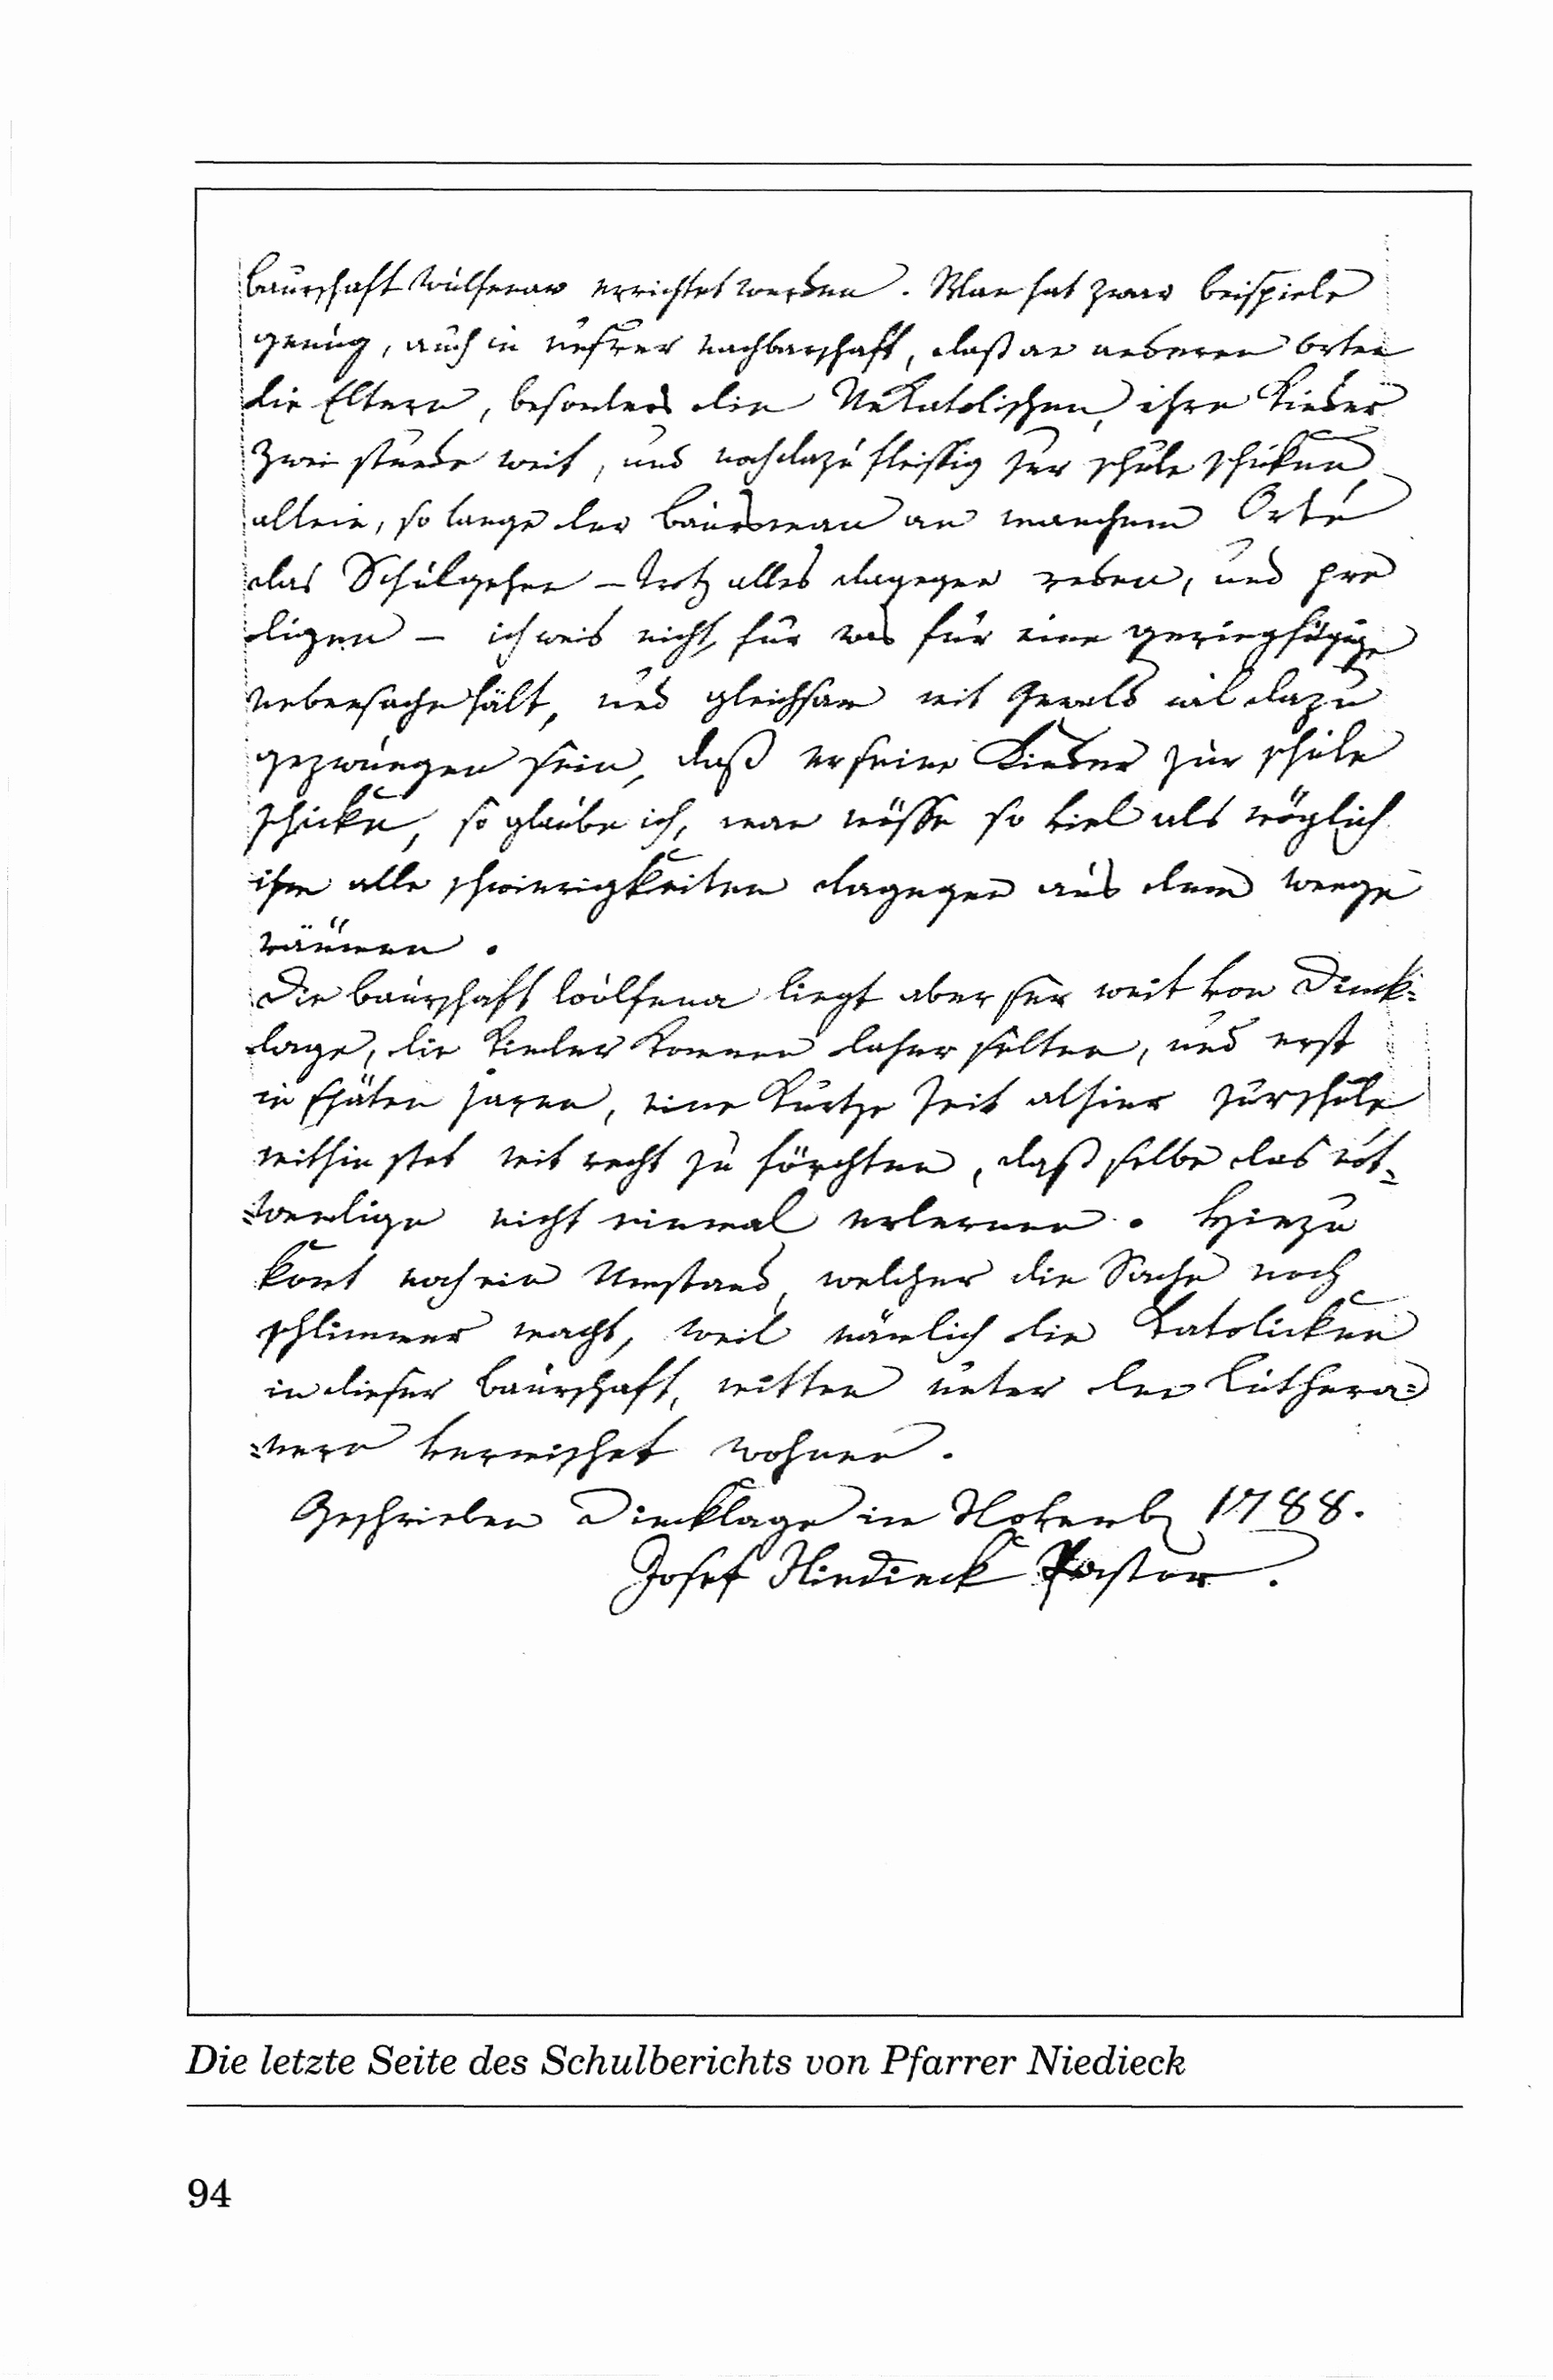 baurschaft Wulfenau errichtet werden. Man hat zwar beispiele
genug, auch in unsrer nachbarschaft, daß an anderen orten
die Eltern, besonders die Unkatolischen, ihre Kinder
zwei stunde weit, und noch dazu fleissig zur schule schicken,
allein, so lange der baursman an manchem Orte
das Schulgehen – trotz alles dagegen reden, und pre
digen – ich weis nicht, für was für eine geringfügige
nebensache hält, und gleichsam mit Gewald wil dazu
gezwungen sein, daß er seine Kinder zur schule
schicke, so glaube ich, man müsse so viel als möglich
ihm alle schwierigkeiten dagegen aus dem weege
räumen.
Die baurschaft wulfena liegt aber ser weit von Dinck=
lage, die kinder kommen daher selten, und erst
in späten jaren, eine kurtze Zeit alhier zur schule
mithin stet mit recht zu förchten, daß selbe das not=
=wendige nicht einmal erlernen. Hiezu
komt noch ein Umstand, welcher die Sache noch
schlimmer macht, weil nämlich die Katolicken
in dieser baurschaft, mitten unter den luthera=
=nern vermischet wohnen.
Geschrieben Dincklage im Novemb 1788.
Josef Niedieck Pastor.
Die letzte Seite des Schulberichts von Pfarrer Niedieck
94